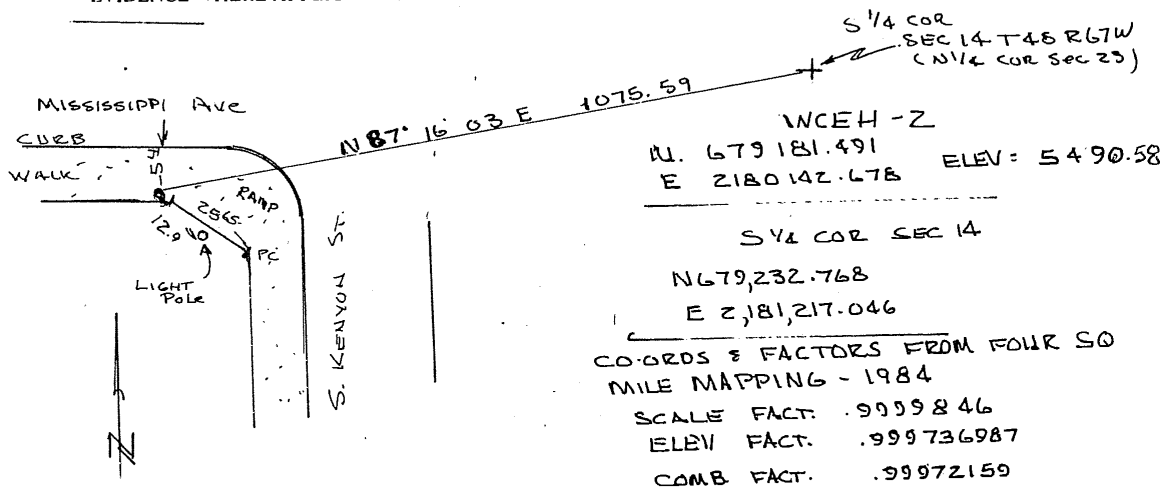 EVIDENCE
S 1/4 COR
SEC 14 T4S R67W
(N 1/4 COR SEC 23)
MISSISSIPPI AVE
CURB
WALK
54
N 87° 16 03 E 1075.59
RAMP
2565
12.9
PC
LIGHT
POLE
S. KENYON ST.
N
WCEH-2
N. 679 181.491
E 2180 142.678
ELEV = 5490.58
S 1/4 COR SEC 14
N 679,232.768
E 2,181,217.046
CO-ORDS & FACTORS FROM FOUR SQ
MILE MAPPING - 1984
SCALE FACT. .9999846
ELEV FACT. .999736987
COMB FACT. .99972159